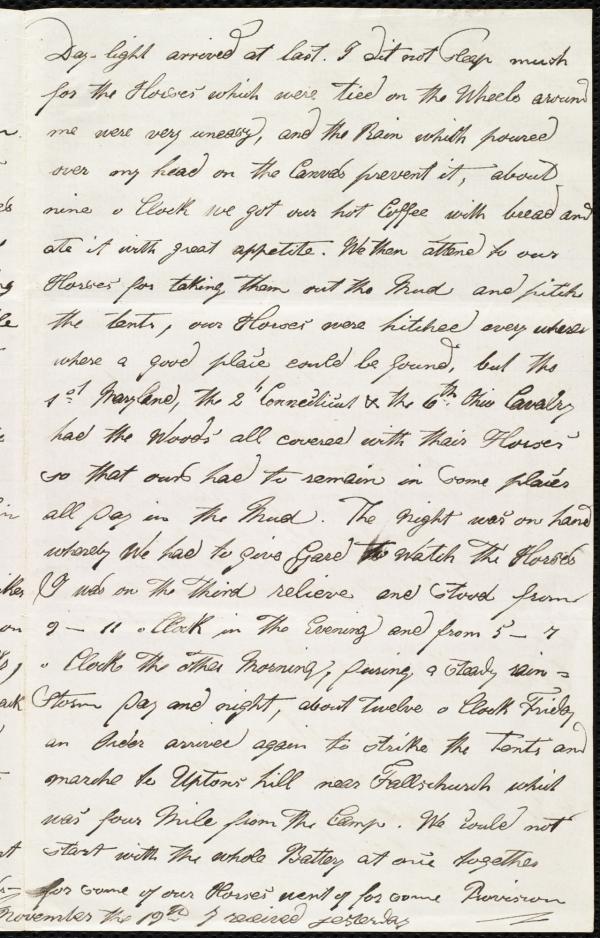 Day-light arrived at last. I dit not Sleep much
for the Horses which were tied on the Wheels around
me were very uneasy, and the Rain which poured
over my head on the Canvas prevent it, about
nine o Clock we got our hot Coffee with bread and
ate it with great appetite. We then attend to our
Horses for taking them out the Mud and pitch
the tents, our Horses were hitched every where
where a good place could be found, but the
1st Maryland, the 2" Connecticut & the 6th Ohio Cavalry
had the Woods all covered with thair Horses
so that ours had to remain in some places
all Day in the Mud. The Night was on hand
whereby We had to give Gard to Watch the Horses
I was on the third relieve and stood from
9 – 11 o Clock in the Evening and from 5 – 7
o Clock the other Morning, During a steady rain=
Storm Day and night, about twelve o Clock Friday
an Order arrived again to strike the Tents and
marche to Uptons hill near Fallschurch which
was four Mile from the Camp. We could not
start with the whole Battery at one together
for some of our Horses went of for some Provision
November the 19th I received yesterday